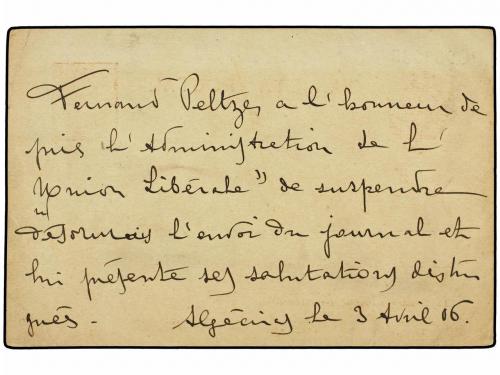 Fernand Peltzer a l'honneur de
prier l'Administration de l'
"Union Libérale" de suspendre
désormais l'envoi du journal et
lui présente ses salutations distin
guées - Algéciras le 3 Avril 06.